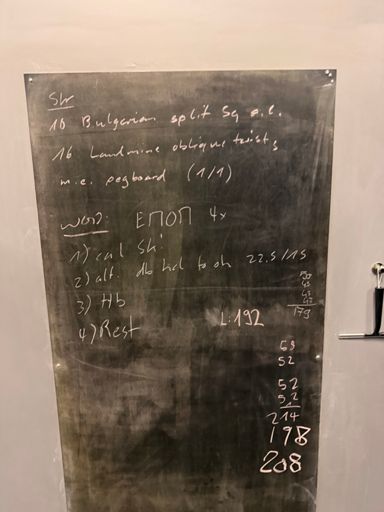 Str
10 Bulgarian split Sq a.l.
16 Landmine oblique twists
m.e. pegboard (1/1)
WOD: ЕПОП 4x
1) cal Ski
2) alt. db hcl to oh 22.5/15
3) Hb
4) Rest
179
L: 192
52
52
52
214
198
208